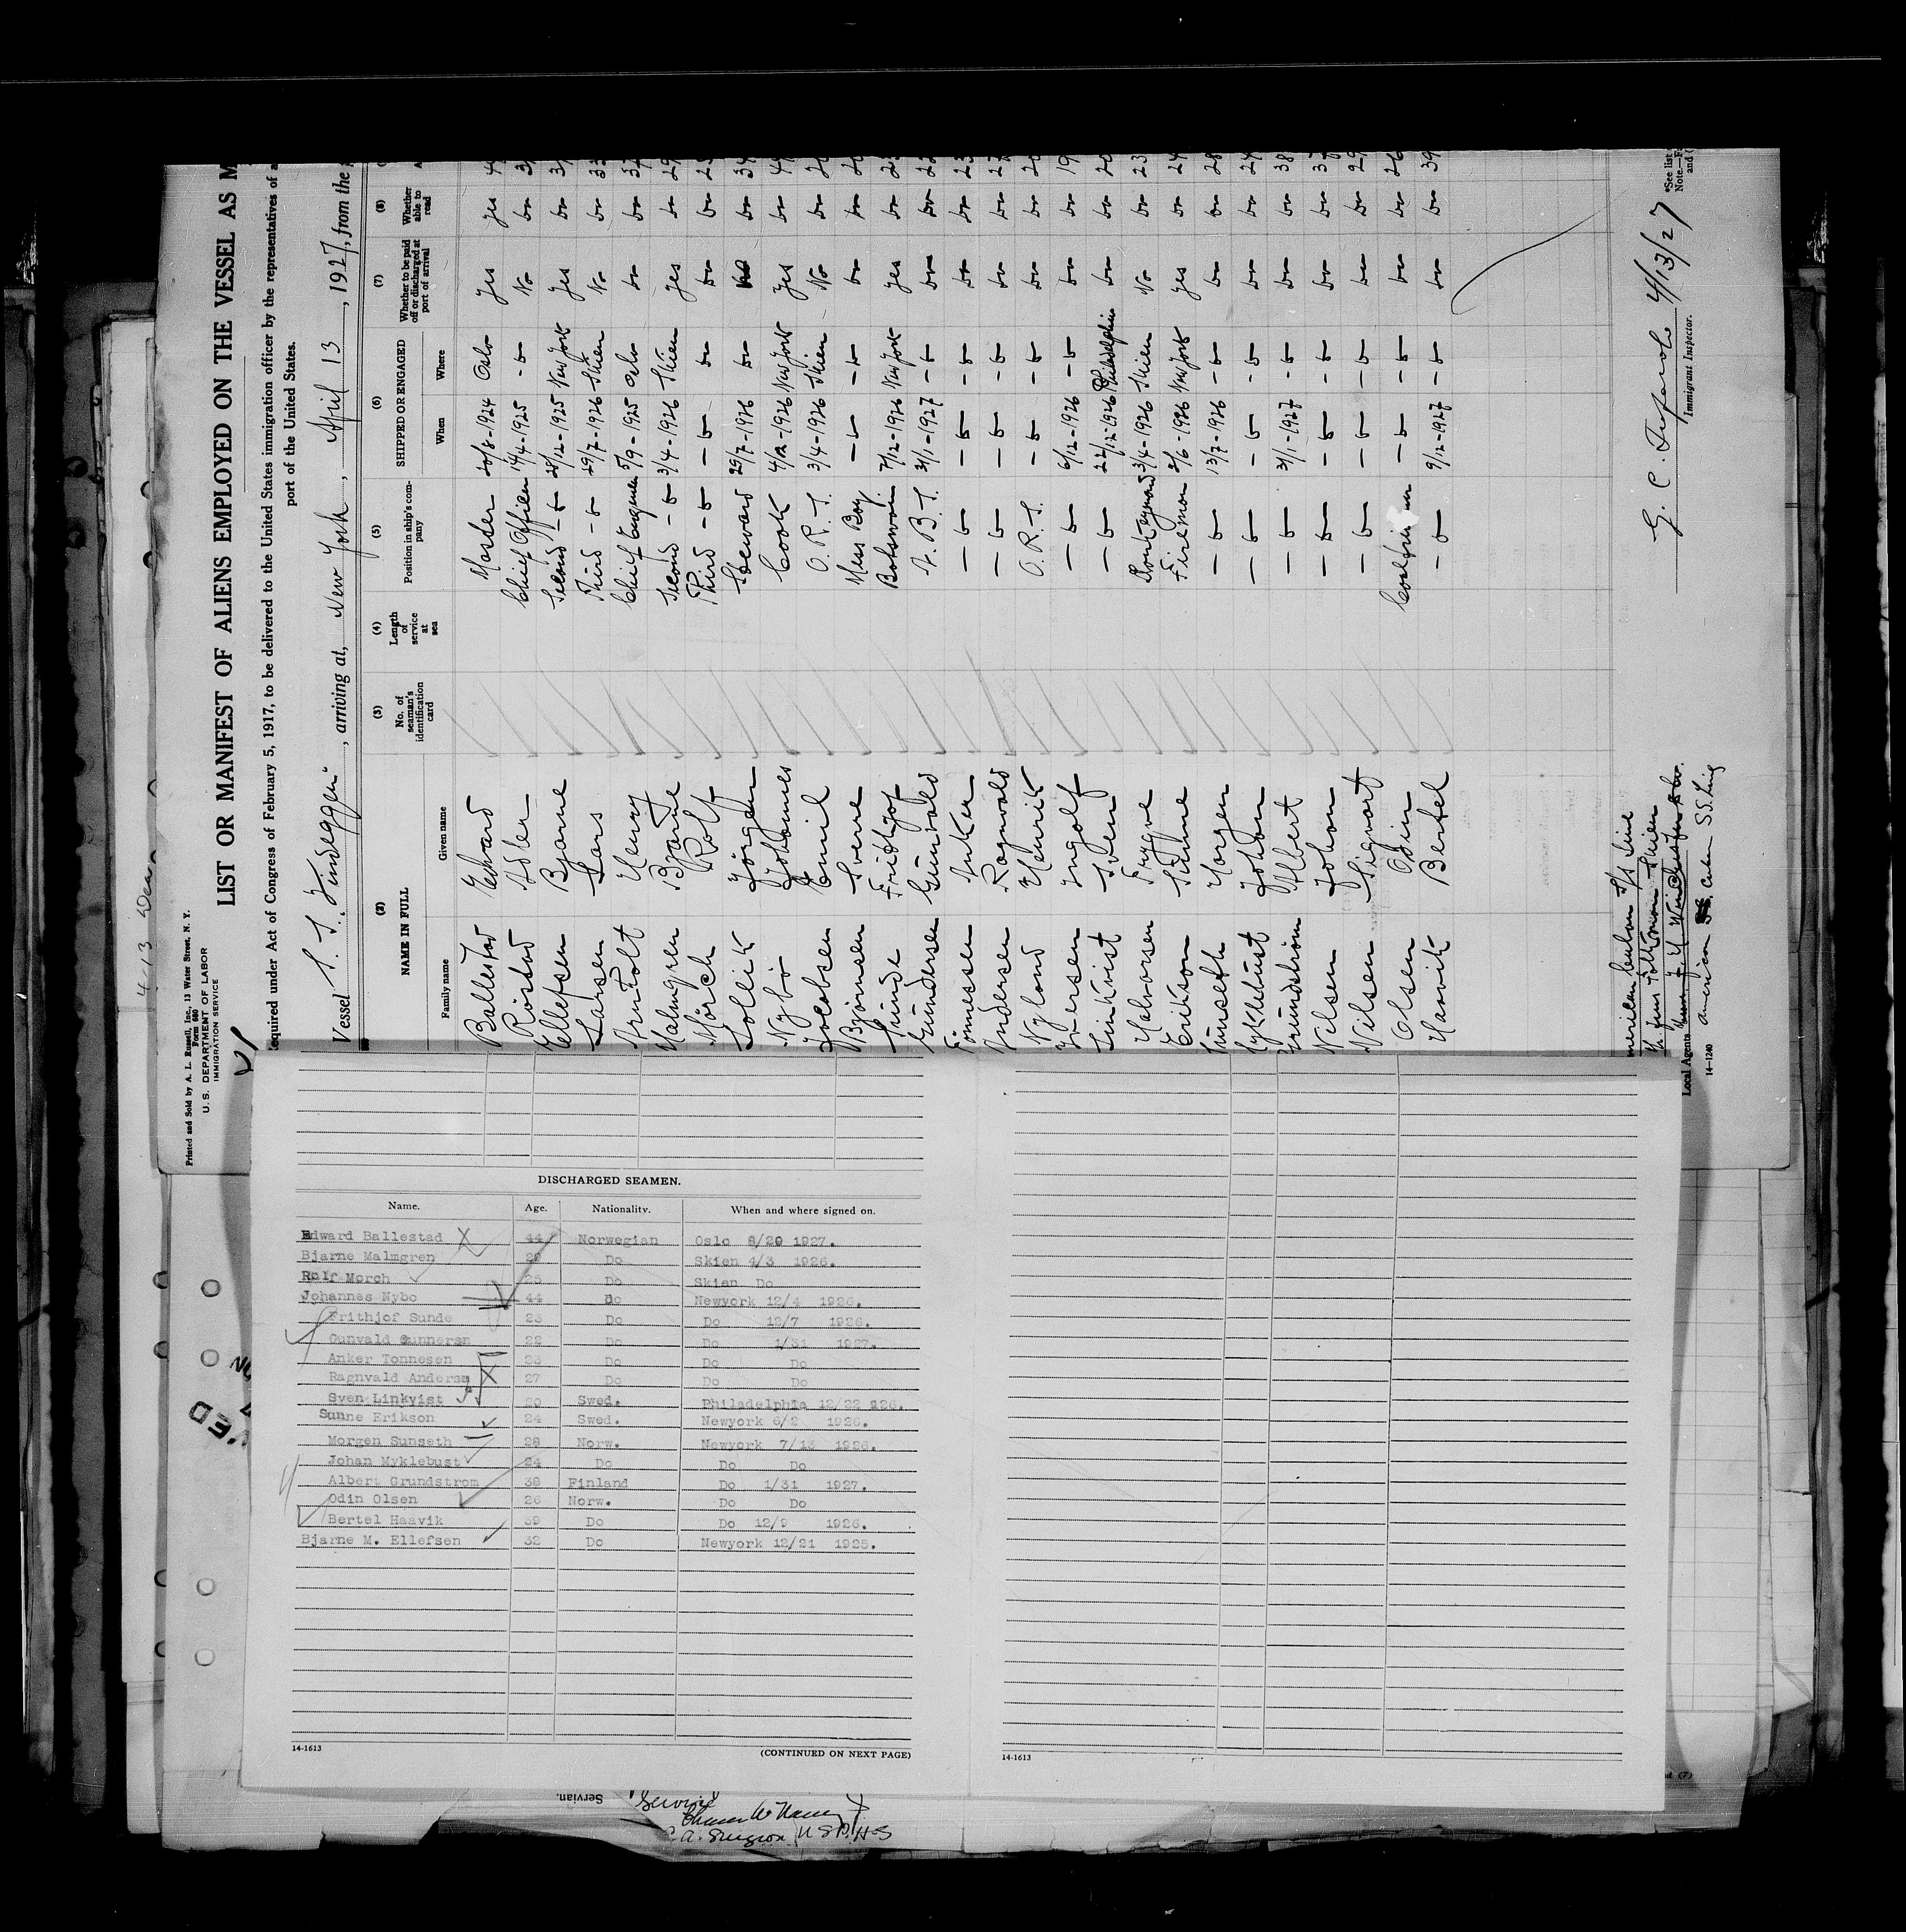 4-13
Printed and Sold by A. L. Russell, Inc., 13 Water Street, N. Y.
Form 680
U. S. DEPARTMENT OF LABOR
IMMIGRATION SERVICE
LIST OR MANIFEST OF ALIENS EMPLOYED ON THE VESSEL AS M
equired under Act of Congress of February 5, 1917, to be delivered to the United States immigration officer by the representatives of a
port of the United States.
Vessel S. S. Tindeggen, arriving at, New York, April 13, 1927, from the
(2) (3) (4) (5) (6) (7) (8)
NAME IN FULL No. of seaman's identification card Length of service at sea Position in ship's company SHIPPED OR ENGAGED Whether to be paid off or discharged at port of arrival Whether able to read
Family name Given name When Where
Ballestad Edvard Master 20/8-1924 Oslo Yes Yes
Röistad Adler Chief Officer 14/4-1925 -"- No do
Ellefsen Bjarne Second -"- 28/12-1925 New York Yes do
Larsen Lars Third -"- 29/7-1926 Skien No do
Arntsolt Henry Chief Engineer 5/9-1925 Oslo do do
Malmgren Bjarne Second -"- 3/4-1926 Skien Yes do
Mörch Rolf Third -"- -"- do do do
Lollik Jörgen Steward 29/7-1926 do No do 34
Nybö Johannes Cook 4/12-1926 New York Yes do
Jacobsen Emil O. R. S. 3/4-1926 Skien No do
Bjørnsen Sverre Mess Boy -"- -"- do do
Sunde Fridtjof Botswain 7/12-1926 New York Yes do
Gundersen Gunvald A. B. S. 31/1-1927 -"- do do
Tönnessen Anker -"- -"- -"- do do 23
Andersen Ragnvald -"- -"- -"- do do
Nyland Henrik O. R. S. -"- -"- do do
Iversen Ingolf -"- 6/12-1926 -"- do do 19
Linkvist Sven -"- 22/12-1926 Philadelphia do do 20
Halvorsen Trygve Donkeyman 3/4-1926 Skien No do 23
Erikson Sunne Firemon 2/6-1926 New York Yes do 24
Sunseth Morgen -"- 13/7-1926 -"- do do 28
Myklebust Johan -"- -"- -"- do do 24
Grundström Albert -"- 31/1-1927 -"- do do 38
Nilsen Johan -"- -"- -"- do do 37
Nilsen Sigvart -"- -"- -"- do do 29
Olsen Odin -"- -"- do do 26
Haavik Bertel -"- 9/12-1927 -"- do do 39
Local Agents
American Cuban S.S. Line
14-1240
4/13/27
Immigrant Inspector.
*See list
Note.—F
and (
DISCHARGED SEAMEN.
Name. Age. Nationality. When and where signed on.
Edward Ballestad 44 Norwegian Oslo 8/20 1927.
Bjarne Malmgren 29 Do Skien 4/3 1926.
Rolf Morch 25 Do Skien Do
Johannes Nybo 44 Do Newyork 12/4 1926.
Frithjof Sunde 23 Do Do 12/7 1926.
Gunvald Gunnersn 22 Do Do 1/31 1927.
Anker Tonnesen 23 Do Do Do
Ragnvald Andersn 27 Do Do Do
Sven Linkvist 20 Swed. Philadelphia 12/22 926.
Sunne Erikson 24 Swed. Newyork 6/2 1926.
Morgen Sunseth 28 Norw. Newyork 7/13 1926.
Johan Myklebust 24 Do Do Do
Albert Grundstrom 38 Finland Do 1/31 1927.
Odin Olsen 26 Norw. Do Do
Bertel Haavik 39 Do Do 12/9 1926.
Bjarne M. Ellefsen 32 Do Newyork 12/21 1925.
14-1613 (CONTINUED ON NEXT PAGE)
14-1613
Servian.